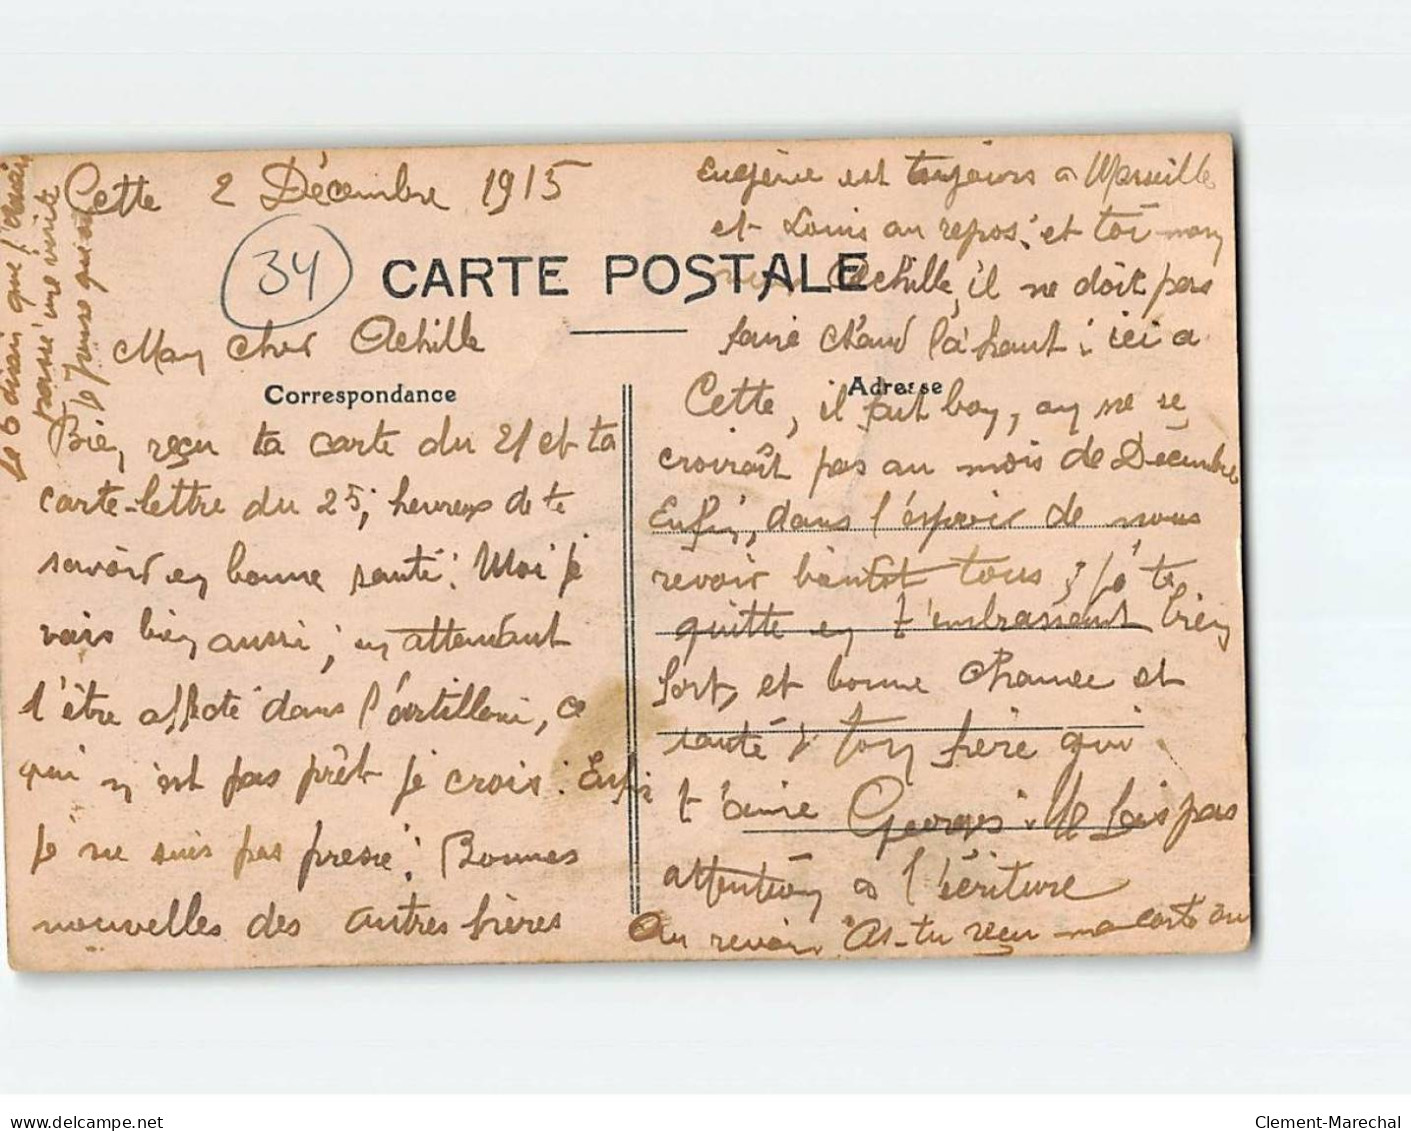 Cette 2 Décembre 1915
34
CARTE POSTALE
Mon cher Achille
Correspondance
Bien reçu ta carte du 21 et ta
carte-lettre du 25, heureux de te
savoir en bonne santé. Moi je
vais bien aussi, en attendant
d'être affecté dans l'artillerie, ce
qui n'est pas prêt je crois. Enfin
je ne suis pas pressé. Bonnes
nouvelles des autres frères
Eugène est toujours à Marseille
et Louis au repos. et toi mon
Achille, il ne doit pas
faire chaud là haut. ici a
Adresse
Cette, il fait bon, on ne se
croirait pas au mois de Décembre
Enfin, dans l'espoir de nous
revoir bientôt tous je te
quitte en t'embrassant bien
fort, et bonne chance et
santé ton frère qui
t'aime Georges. Ne fais pas
attention à l'écriture
Au revoir As-tu reçu ma carte du
le 6 disant que j'avais
passé une visite
je pense que oui
www.delcampe.net
Clement-Marechal